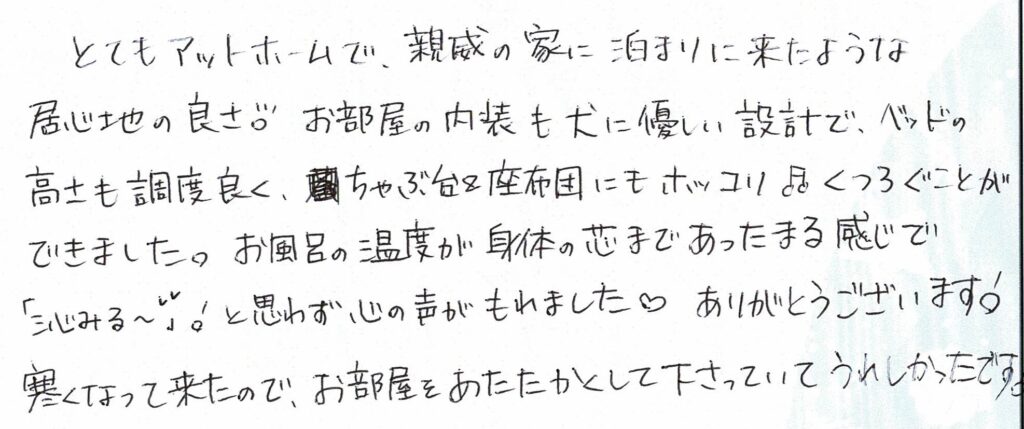 とてもアットホームで、親威の家に泊まりに来たような
居心地の良さ!! お部屋の内装も犬に優しい設計で、ベッドの
高さも調度良く、ちゃぶ台&座布団にもホッコリ♫くつろぐことが
できました。お風呂の温度が身体の芯まであったまる感じで
「沁みる〜"♪!と思わず心の声がもれました♡ ありがとうございます!
寒くなって来たので、お部屋をあたたかくして下さっていてうれしかったです。